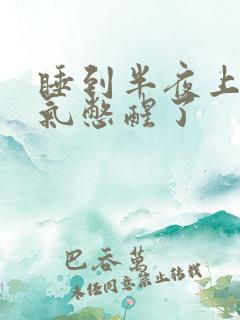 睡到半夜上
氣憋醒了
巴吞萬
未经同意禁止转载